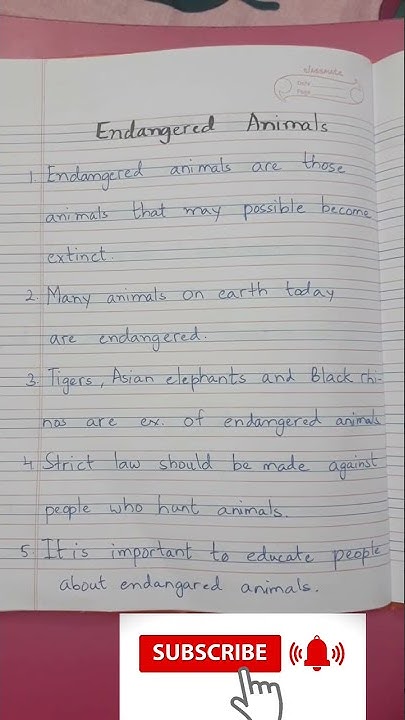 classmate
Date
Page
Endangered Animals
1. Endangered animals are those
animals that may possible become
extinct.
2. Many animals on earth today
are endangered.
3. Tigers, Asian elephants and Black rhi-
nos are ex. of endangered animals
4. Strict law should be made against
people who hunt animals.
5. It is important to educate people
about endangared animals.
SUBSCRIBE